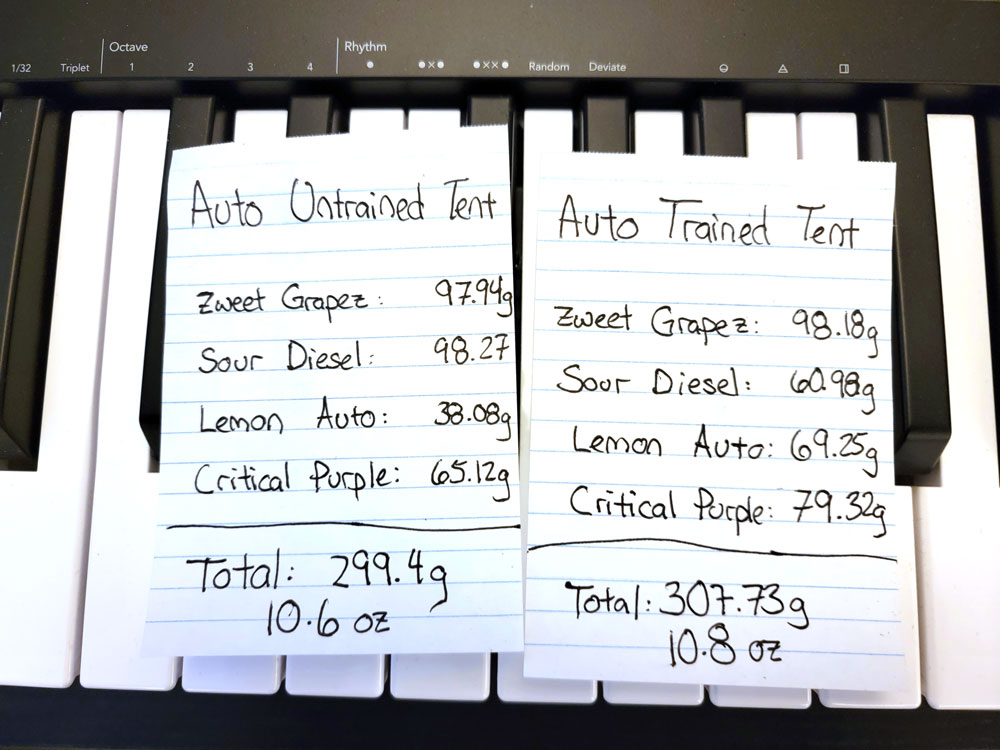 Octave
Rhythm
1/32 Triplet 1 2 3 4 Random Deviate
Auto Untrained Tent
Zweet Grapez: 97.94g
Sour Diesel: 98.27
Lemon Auto: 38.08g
Critical Purple: 65.12g
Total: 299.4g
10.6 oz
Auto Trained Tent
Zweet Grapez: 98.18g
Sour Diesel: 60.98g
Lemon Auto: 69.25g
Critical Purple: 79.32g
Total: 307.73g
10.8 oz